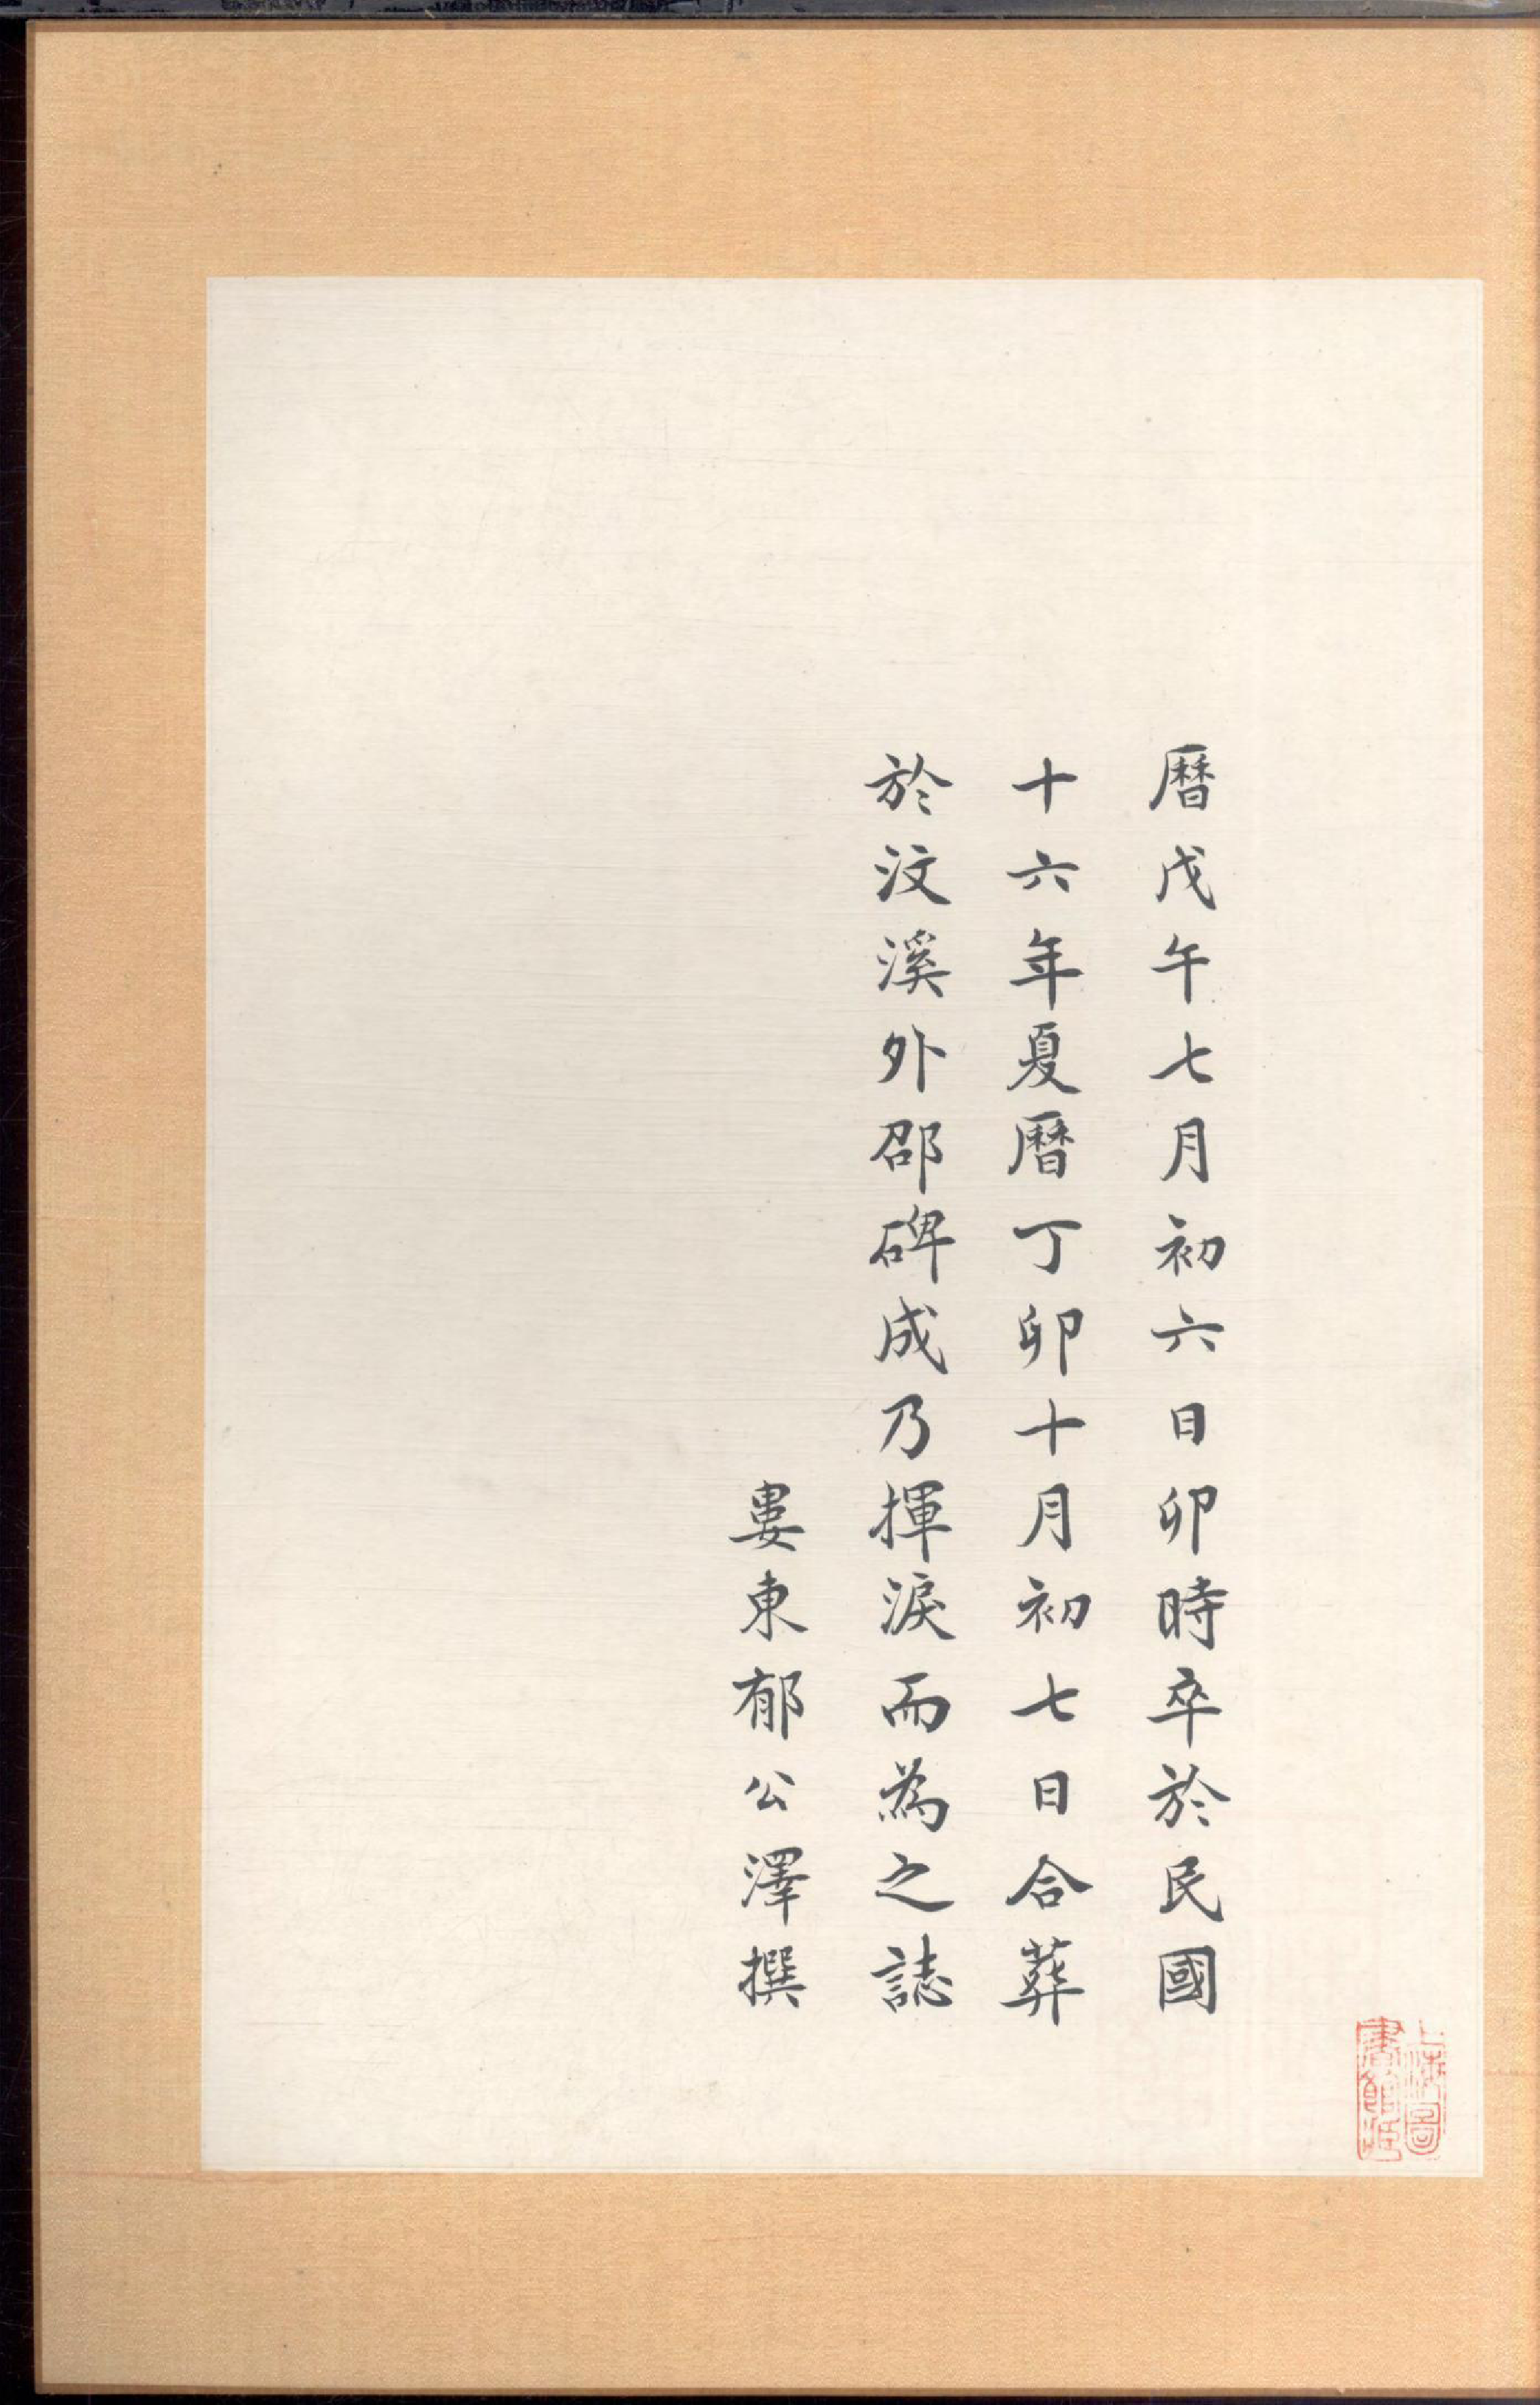 曆戊午七月初六日卯時卒於民國
十六年夏曆丁卯十月初七日合葬
於汶溪外邵碑成乃揮淚而為之誌
婁東郁公澤撰
上海圖
書館藏